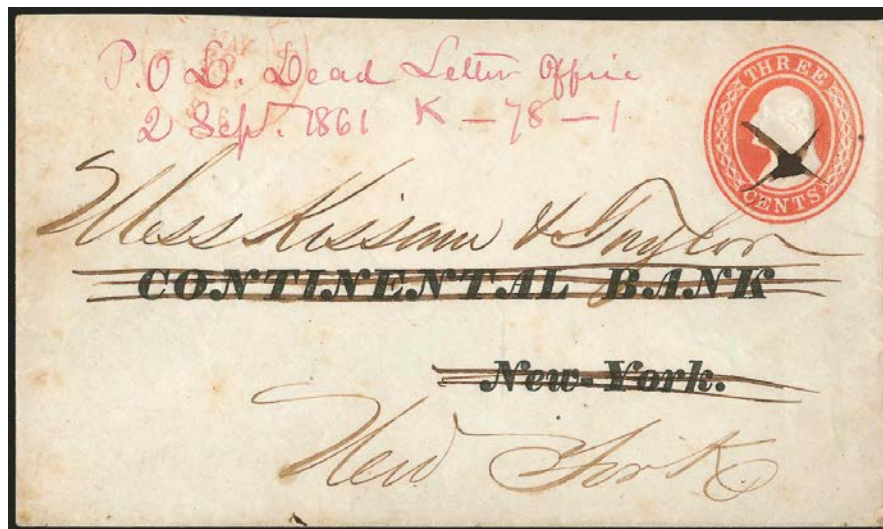 P.O D. Dead Letter Office
2 Sep. 1861 K — 78 — 1
THREE
CENTS
Mess Kissam & Taylor
CONTINENTAL BANK
New-York.
New York